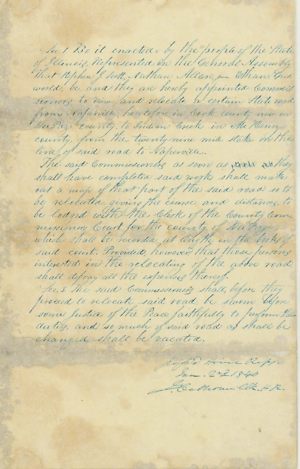 Sec 1 Be it enacted by the people of the State
of Illinois Represented in the General Assembly
That Stephen J Scott, Nathan Allen Jun
would be and they are hereby appointed Commis
sioners to view and relocate a certain state road
from Naperville heretofore in Cook county now in
Du Page county to Indian Creek in McHenry
county from the twenty nine mile stake on the
line of said road to Naperville
The said Commissioners as soon as they
shall have completed said work shall make
out a map of that part of the said road so to
be relocated giving the course and distance, to
be lodged with the Clerk of the County Com
missioners Court for the county of Du Page
which shall be recorded at length in the books of
said court. Provided however that those persons
interested in the relocating of the above road
shall defray all the expenses thereof.
Sec 2 The said Commissioners shall before they
proceed to relocate said road be sworn before
some Justice of the Peace faithfully to perform their
duties, and so much of said road as shall be
changed shall be vacated.
House Reps
Jan. 22d 1840
Calhoun Clk. H.R.